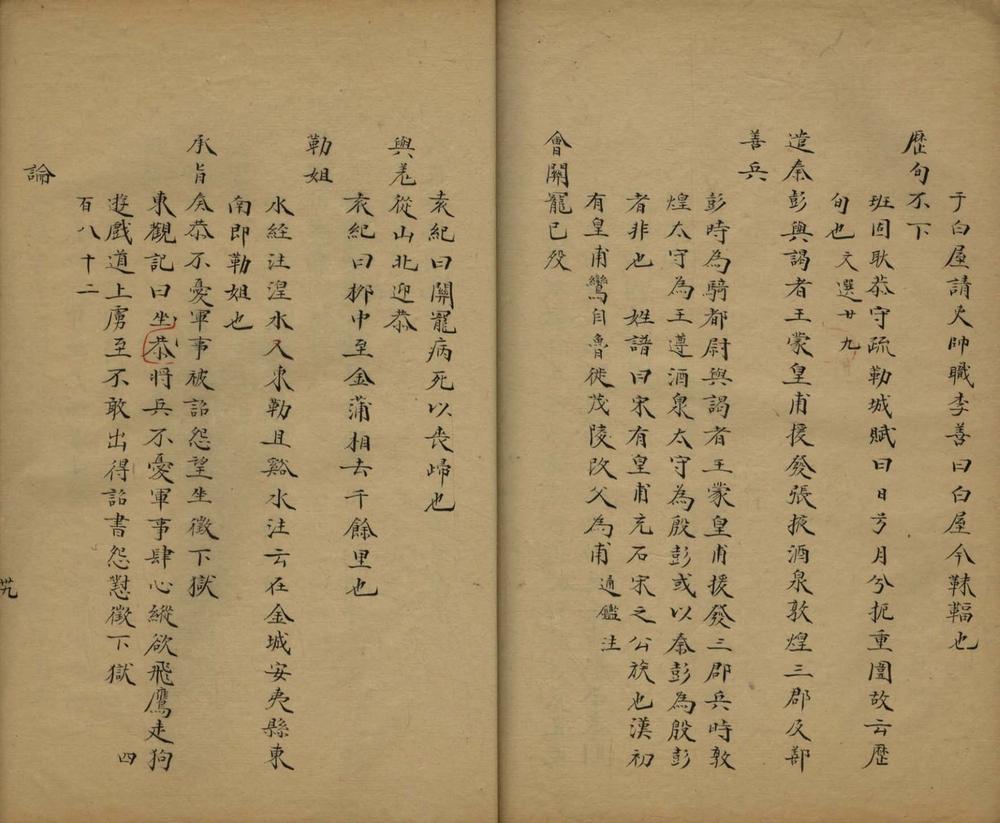 于白屋請大帥職李善曰白屋今靺鞨也
歷旬不下
班固耿恭守疏勒城賦曰日兮月兮扼重圍故云歷
旬也 文選廿九
遣秦彭與謁者王蒙皇甫援發張掖酒泉敦煌三郡及鄯
善兵
彭時為騎都尉與謁者王蒙皇甫援發三郡兵時敦
煌太守為王遵酒泉太守為殷彭或以秦彭為殷彭
者非也 姓譜曰宋有皇甫充石宋之公族也漢初
有皇甫鸞自魯徙茂陵改父為甫 通鑑注
會關寵已歿
袁紀曰關寵病死以喪歸也
與羌從山北迎恭
袁紀曰柳中至金蒲相去千餘里也
勒姐
水經注湟水入東勒且谿水注云在金城安夷縣東
南即勒姐也
承旨奏恭不憂軍事被詔怨望坐徵下獄
東觀記曰坐恭將兵不憂軍事肆心縱欲飛鷹走狗
遊戲道上虜至不敢出得詔書怨懟徵下獄 四
百八十二
論
卅九